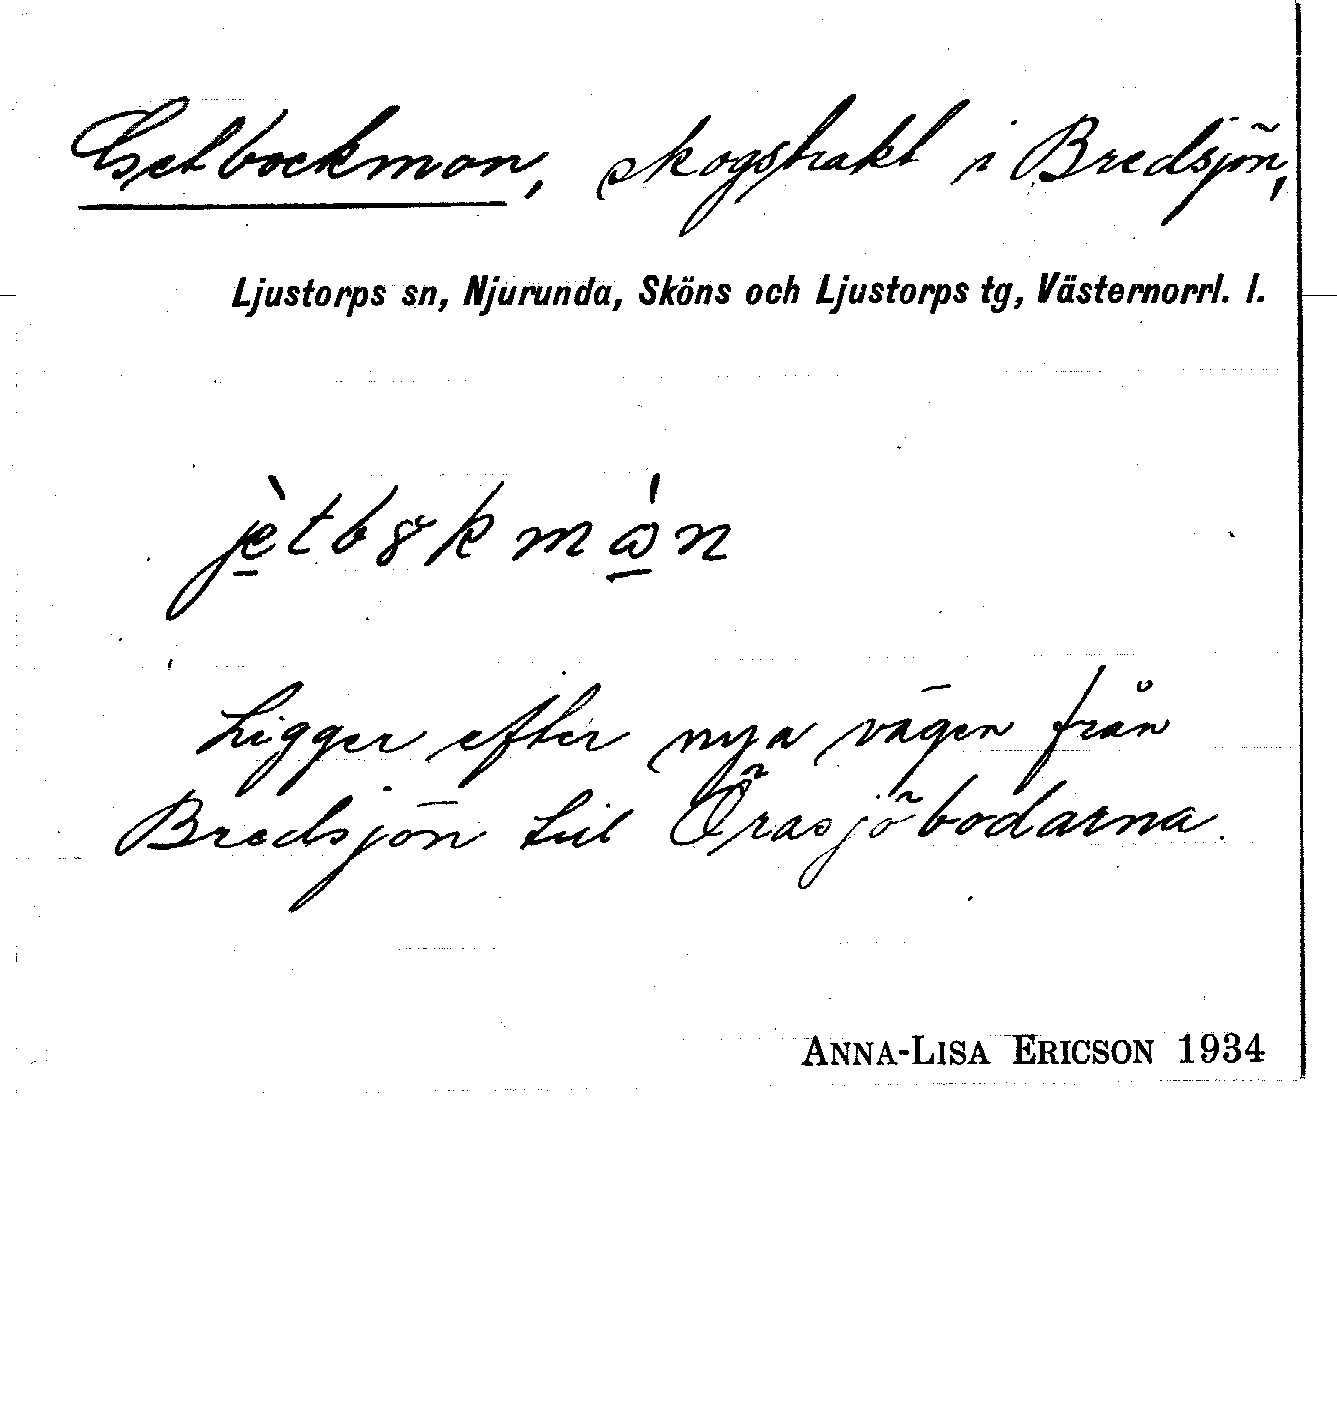 Getbockmon, skogstrakt i Bredsjön,
Ljustorps sn, Njurunda, Sköns och Ljustorps tg, Västernorrl. l.
jètb8kmòn
Ligger efter nya vägen från
Bredsjön till Örasjöbodarna.
ANNA-LISA ERICSON 1934